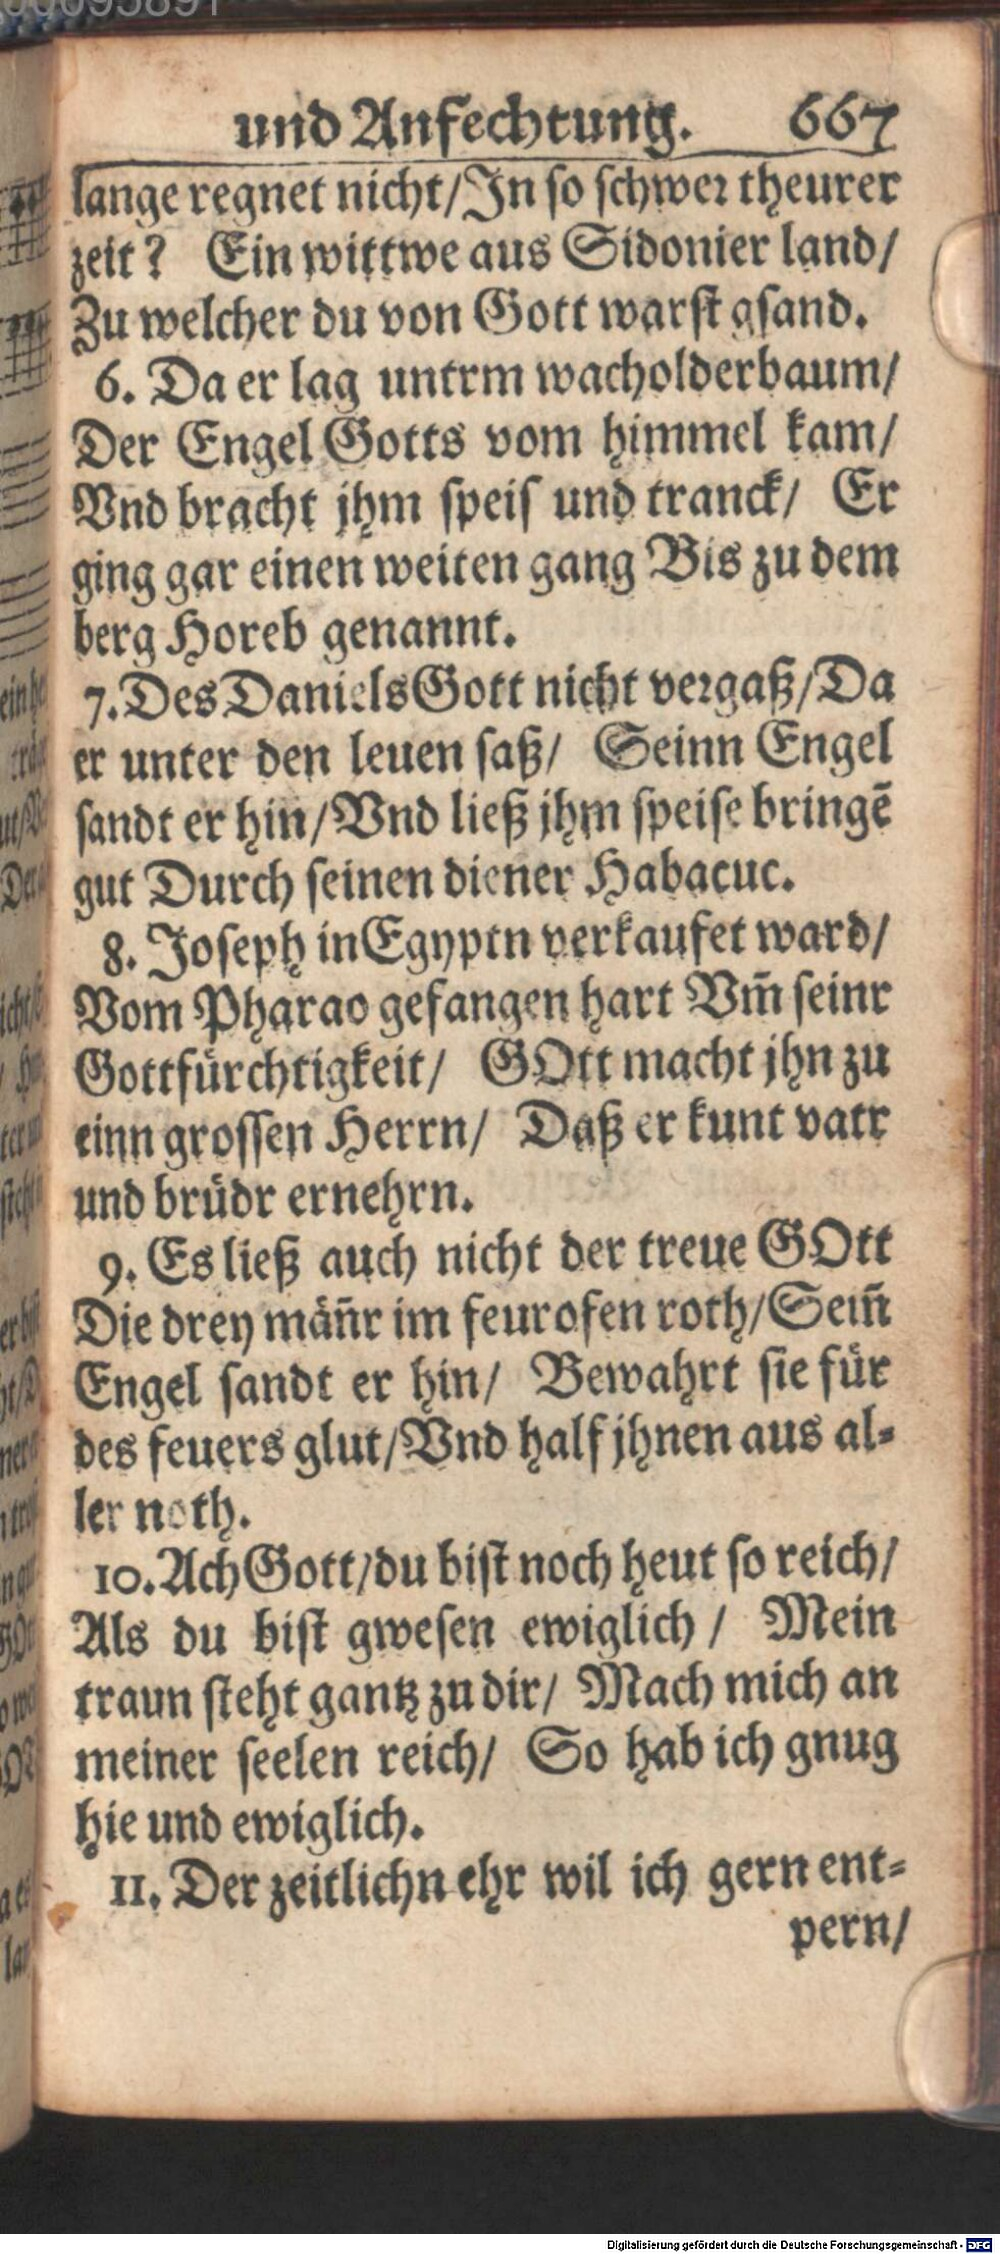 und Anfechtung. 667
lange regnet nicht/In so schwer theurer
zeit? Ein wittwe aus Sidonier land/
Zu welcher du von Gott warst gsand.
6. Da er lag untrm wacholderbaum/
Der Engel Gotts vom himmel kam/
Vnd bracht jhm speis und tranck/ Er
ging gar einen weiten gang Bis zu dem
berg Horeb genannt.
7. Des Daniels Gott nicht vergaß/Da
er unter den leuen saß/ Seinn Engel
sandt er hin/Vnd ließ jhm speise bringē
gut Durch seinen diener Habacuc.
8. Joseph in Egyptn verkaufet ward/
Vom Pharao gefangen hart Vm̄ seinr
Gottfürchtigkeit/ GOtt macht jhn zu
einn grossen Herrn/ Daß er kunt vatr
und brüdr ernehrn.
9. Es ließ auch nicht der treue GOtt
Die drey män̄r im feurofen roth/Sein̄
Engel sandt er hin/ Bewahrt sie für
des feuers glut/Vnd half jhnen aus al-
ler noth.
10. Ach Gott/du bist noch heut so reich/
Als du bist gwesen ewiglich/ Mein
traun steht gantz zu dir/ Mach mich an
meiner seelen reich/ So hab ich gnug
hie und ewiglich.
11. Der zeitlichn ehr wil ich gern ent-
pern/
Digitalisierung gefördert durch die Deutsche Forschungsgemeinschaft - DFG